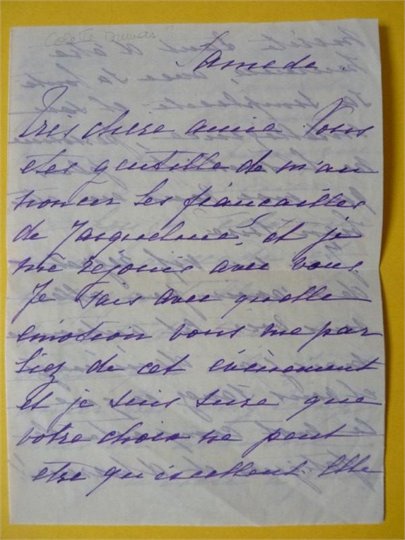 Samedi.
Très chere amie. Vous
etes gentille de m'an
noncer les fiançailles
de Jacqueline, et je
me rejouis avec vous.
Je sais avec quelle
emotion vous me par
liez de cet évènement
et je suis sure que
votre choix ne peut
être qu'excellent. Elle